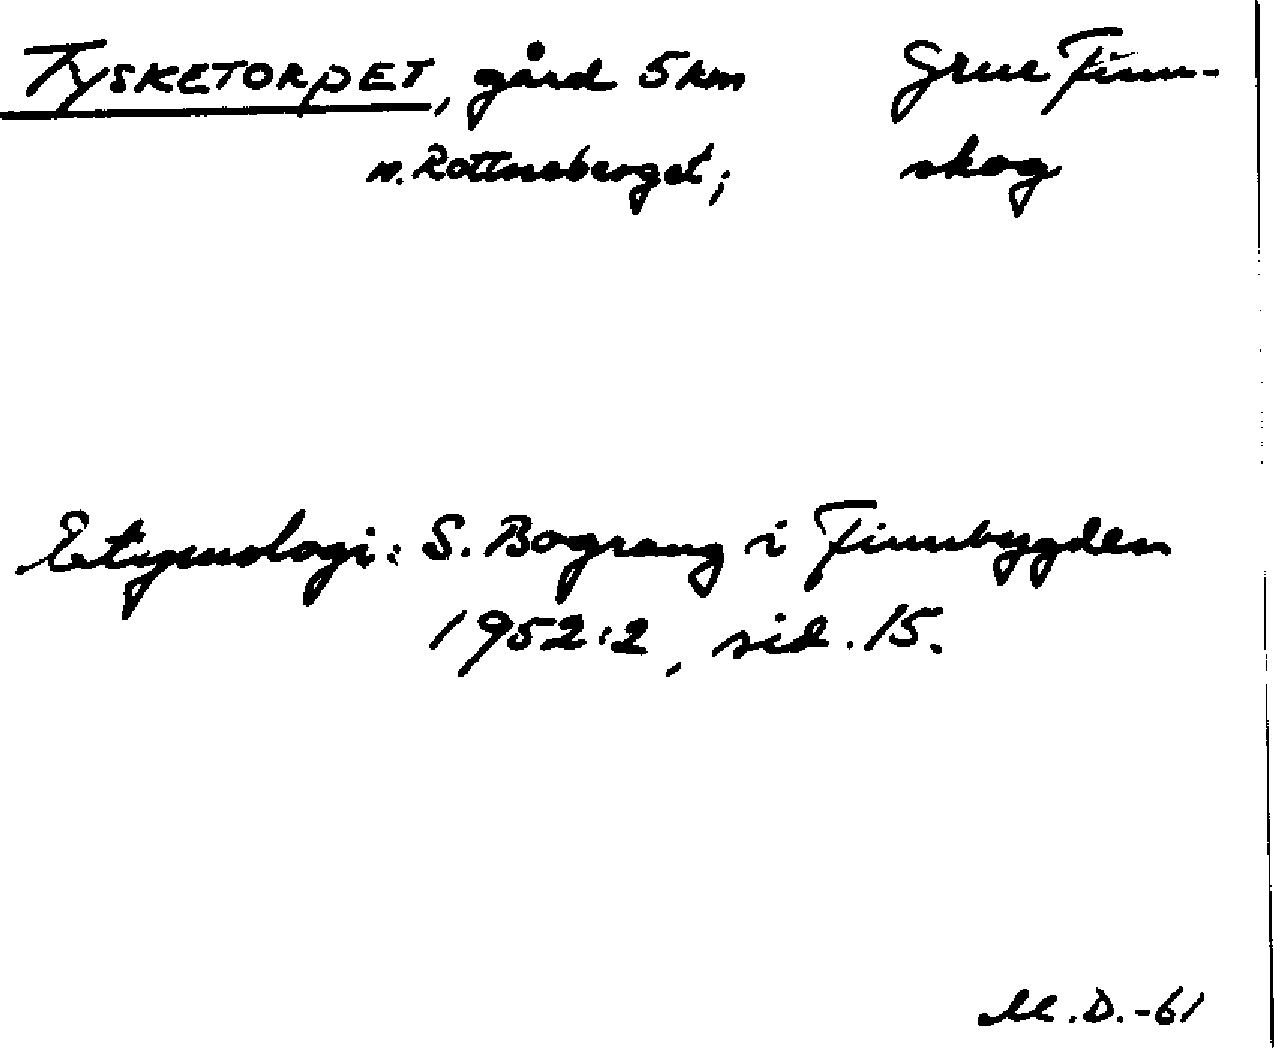 TYSKETORPET, gård 5 km
n. Rottneberget;
Grue Finn-
skog
Etymologi: S. Bograng i Finnbygden
1952:2, sid. 15.
M.D.-61